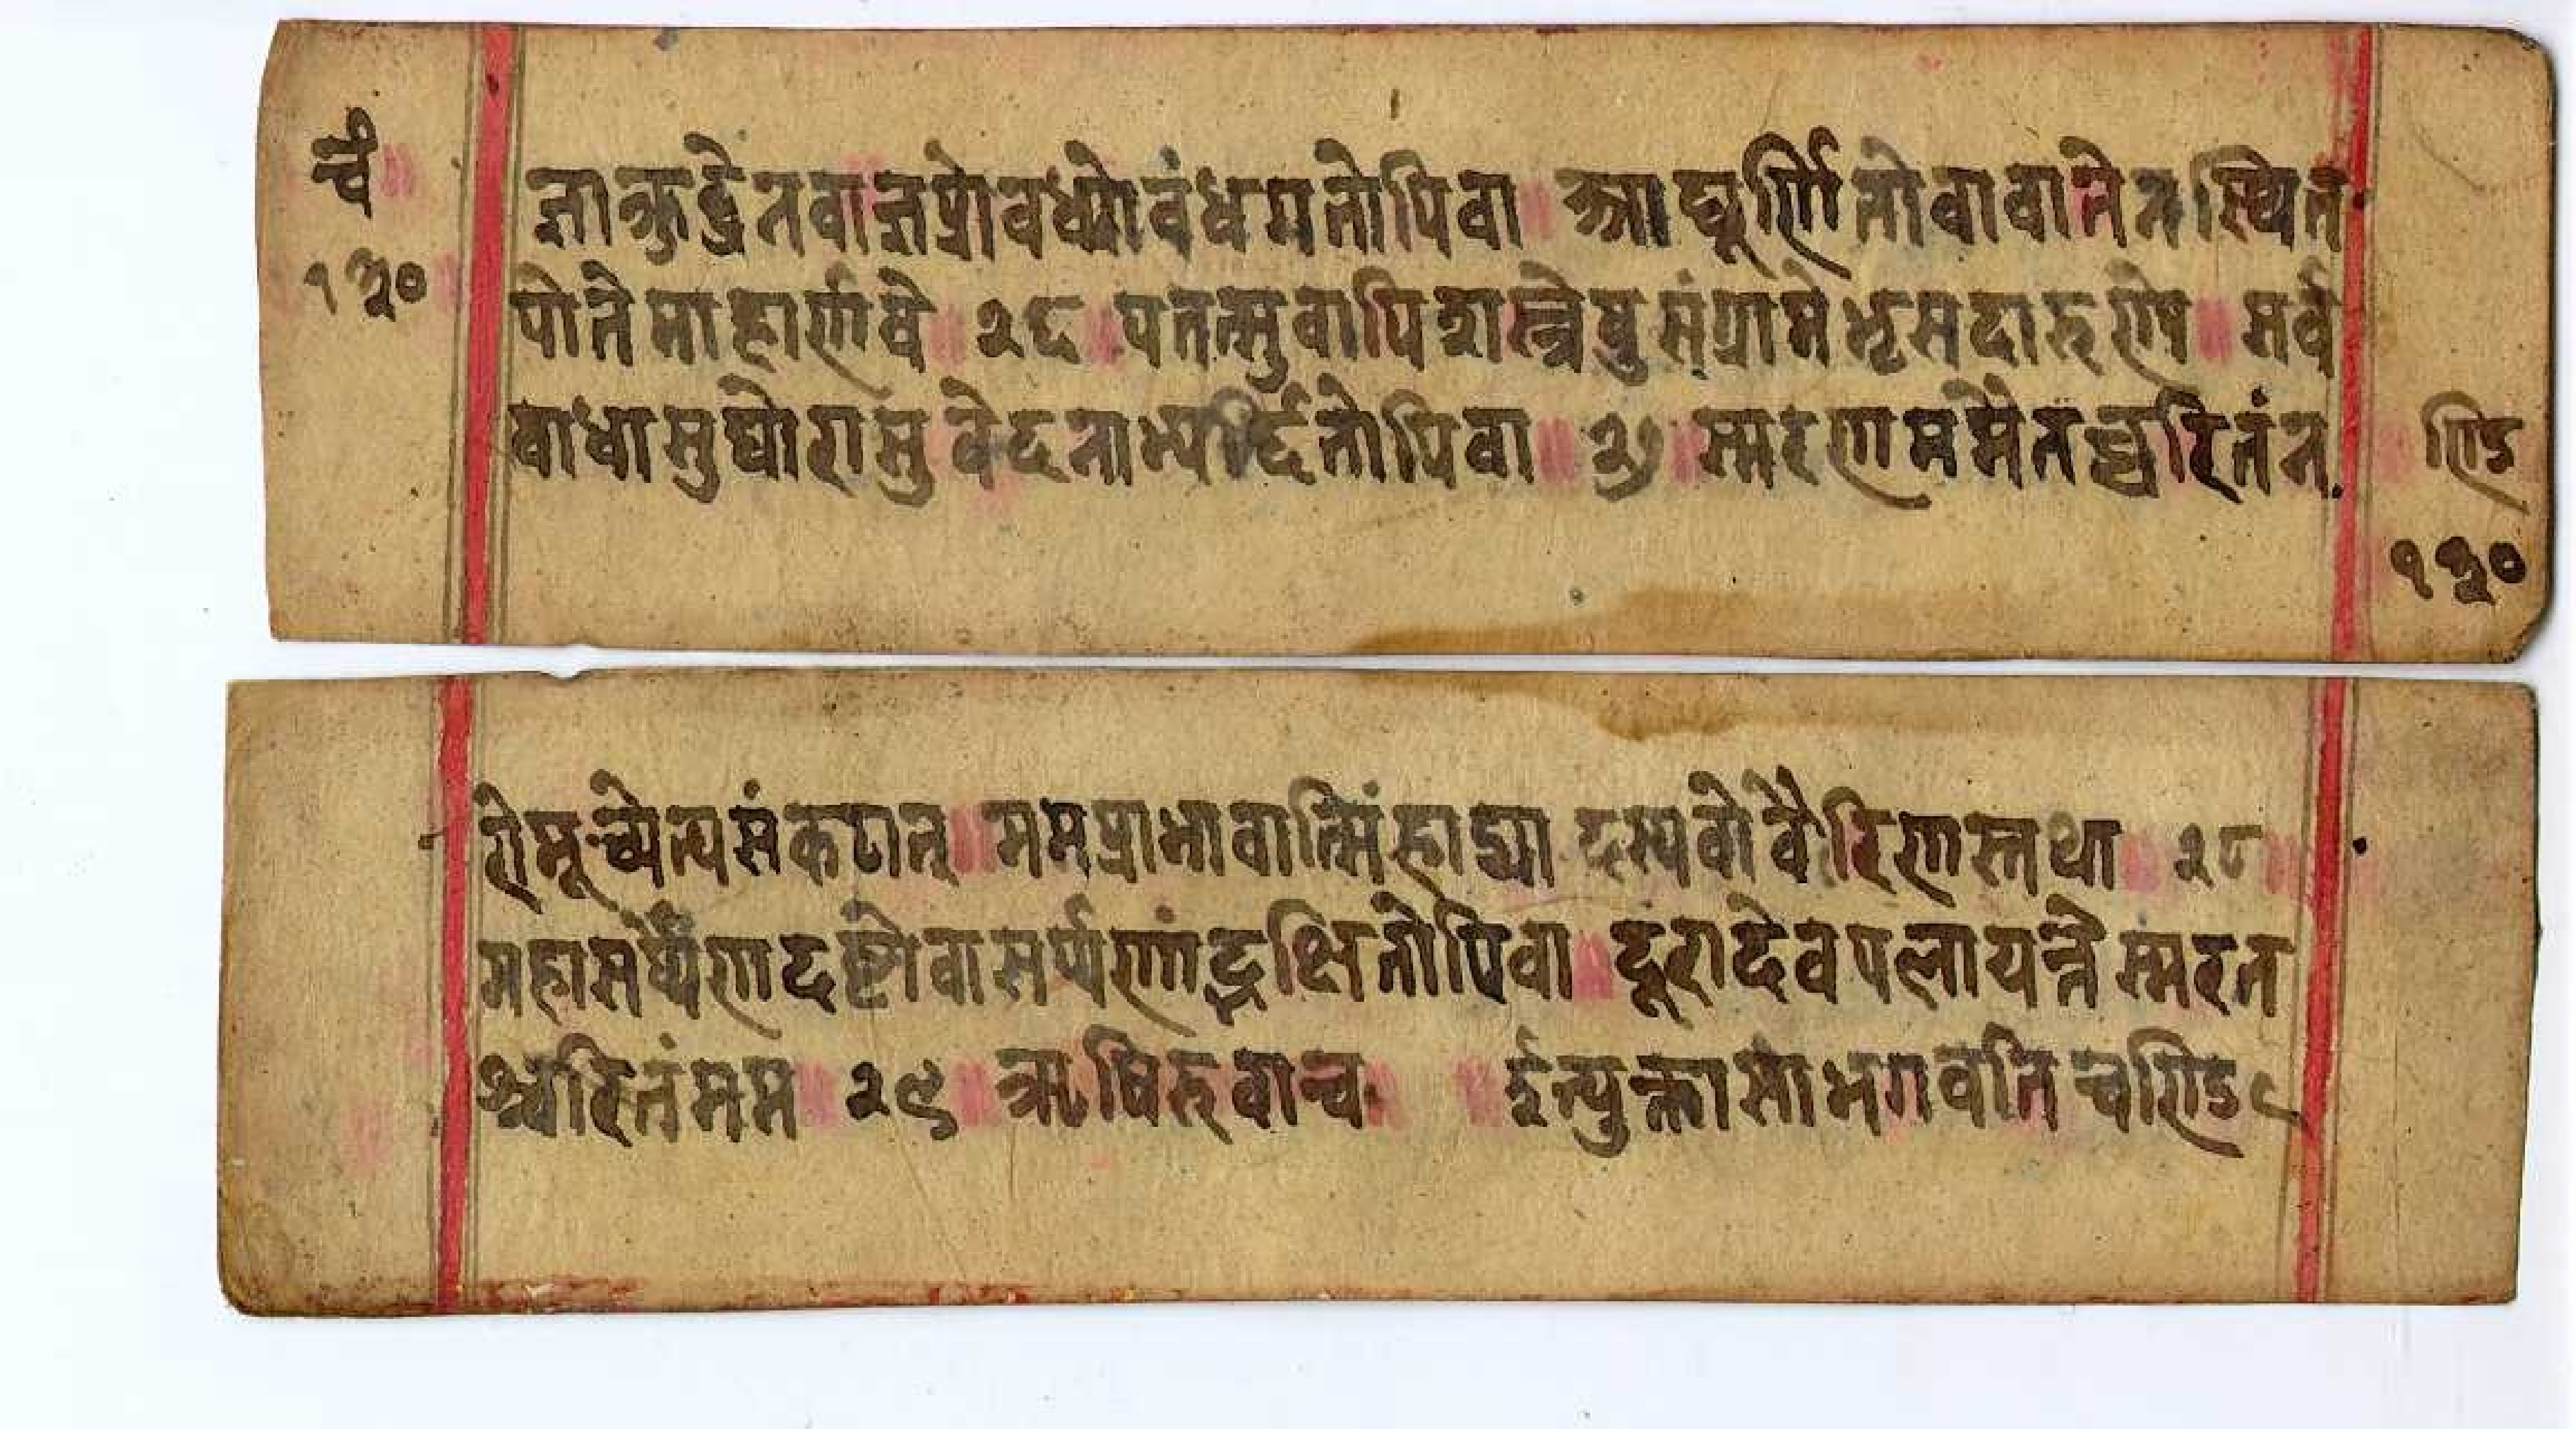 चं
१५०
ज्ञाक्रुद्धेनवाज्ञप्रोवध्योवंधमतोपिवा ॥ आघूर्णितोवावातेनस्थित
पोतेमाहार्णवे ॥ २६ ॥ पतत्सुवापिशस्त्रेषुसंग्रामेभृसदारुणे ॥ सर्व
वाधासुघोरासुवेदनाभ्यर्दितोपिवा ॥ २७ ॥ स्मरणाममैतच्चरितंन
ण्डि
१५०
रोमूच्येत्यसंकटात् ॥ ममप्राभावात्सिंहाद्या दस्यवोवैरिणस्तथा ॥ २८ ॥
महासर्पैणादष्टोवासर्पणांद्भक्षितोपिवा ॥ दूरादेवपलायन्तेस्मरत
श्चरितंमम ॥ २९ ॥ ऋषिरुवाच ॥ ॥ ईत्युक्तासाभगवतिचण्डि